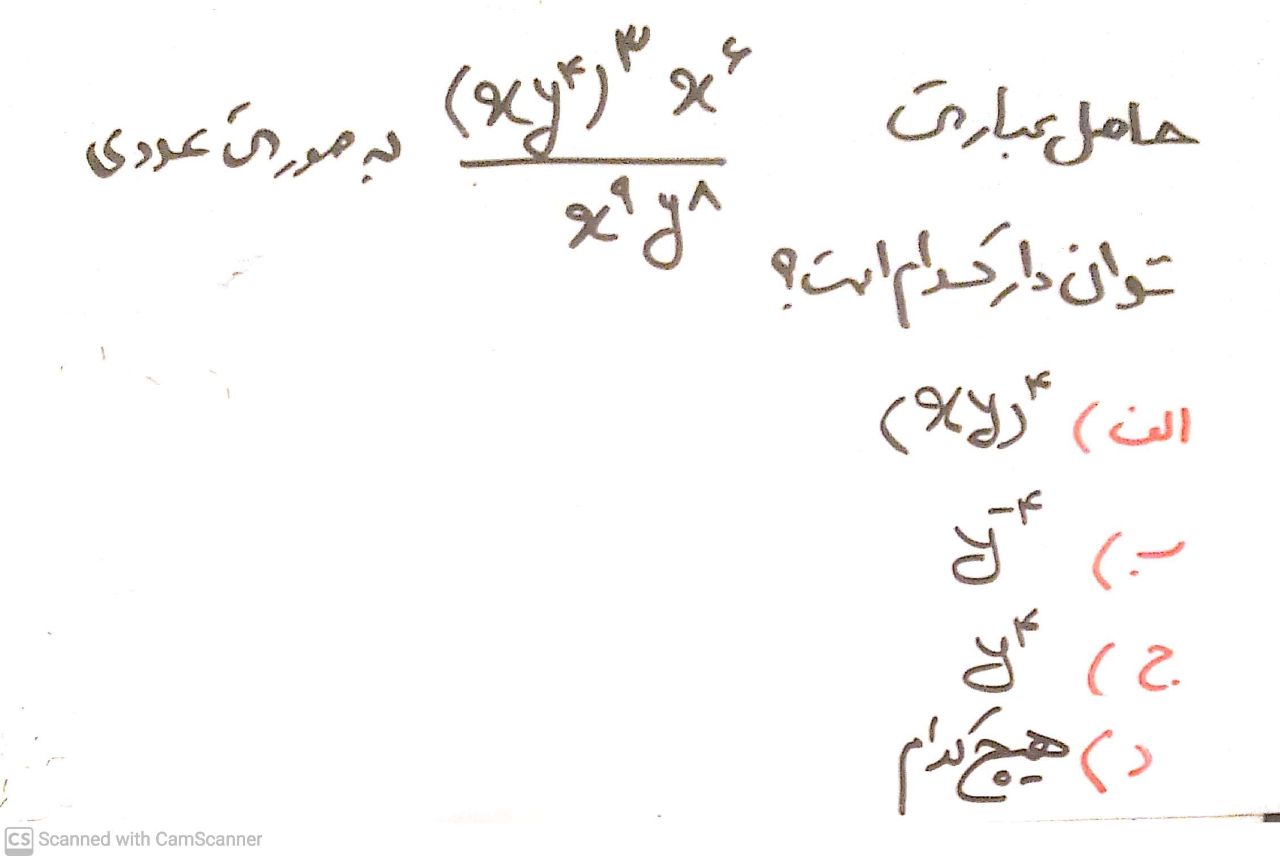 حاصل عبارت (xy⁴)³ x⁶ / x⁹ y⁸ به صورت عددی
توان دار کدام است؟
الف) (xy)⁴
ب) y⁻⁴
ج) y⁴
د) هیچ کدام
CS Scanned with CamScanner